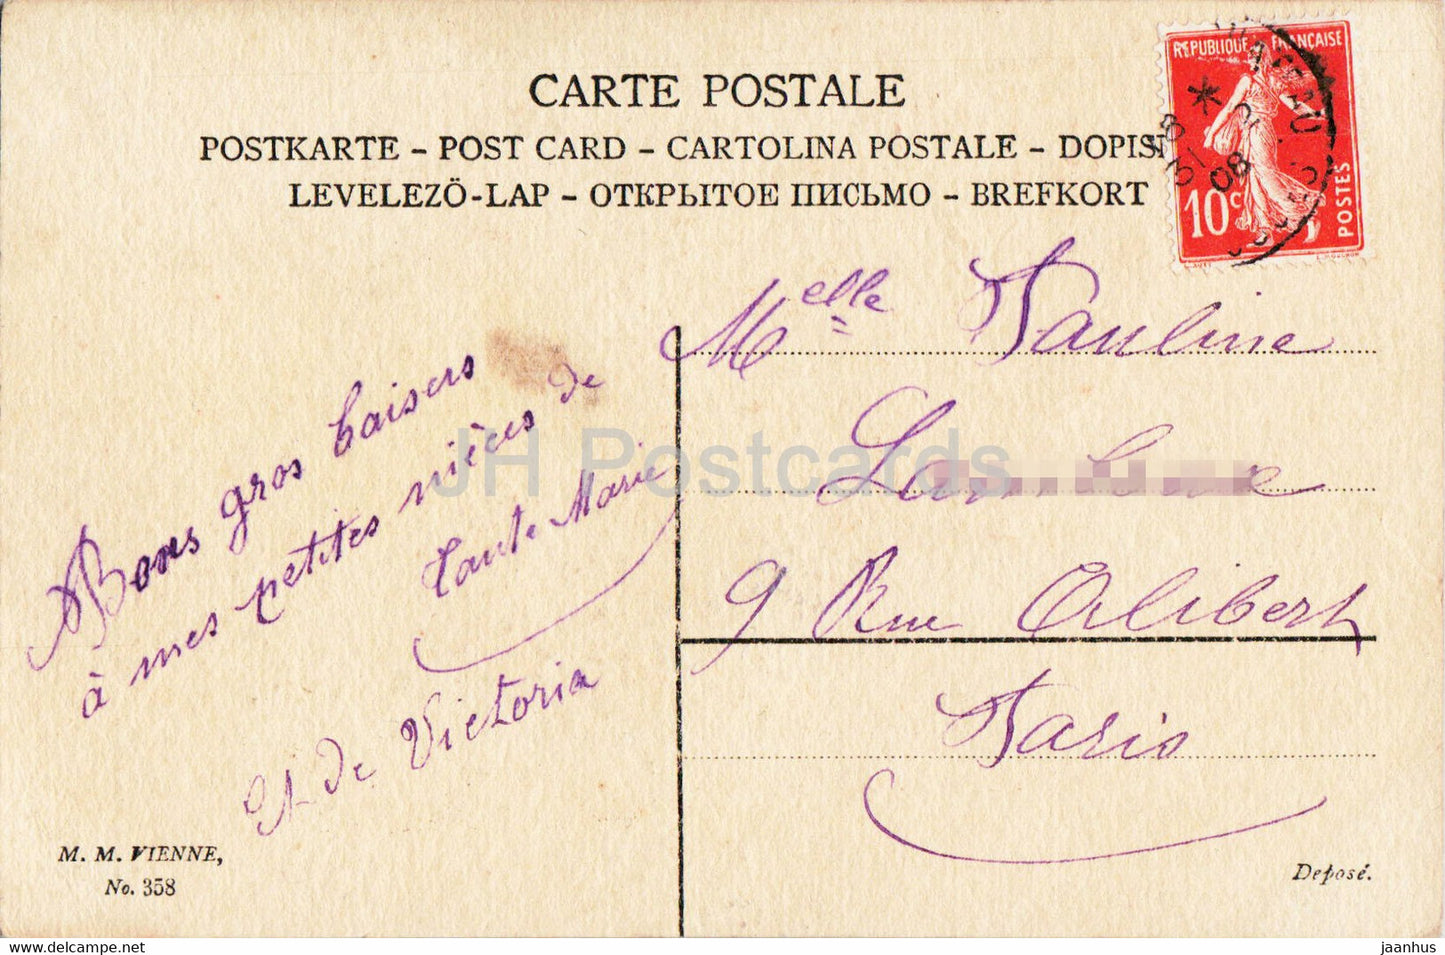 CARTE POSTALE
POSTKARTE – POST CARD – CARTOLINA POSTALE – DOPISN
LEVELEZÖ-LAP – ОТКРЫТОЕ ПИСЬМО – BREFKORT
REPUBLIQUE FRANÇAISE
10c
POSTES
31
08
Bons gros baisers
à mes petites nièces de
tante Marie
et de Victoria
Melle Pauline
9 Rue Alibert
Paris
M. M. VIENNE,
No. 358
Deposé.
JH Postcards
www.hippostcard.com
jaanhus